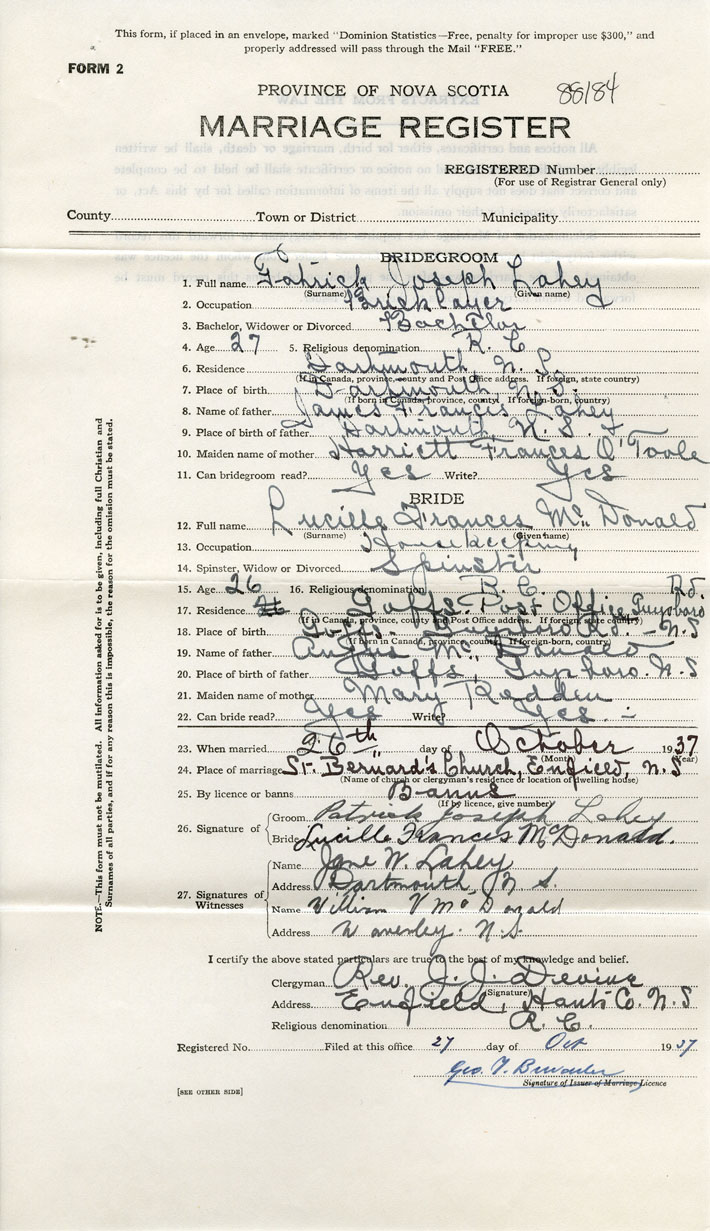 This form, if placed in an envelope, marked "Dominion Statistics—Free, penalty for improper use $300," and
properly addressed will pass through the Mail "FREE."
FORM 2
PROVINCE OF NOVA SCOTIA 88184
MARRIAGE REGISTER
REGISTERED Number
(For use of Registrar General only)
County Town or District Municipality
BRIDEGROOM
1. Full name Patrick Joseph Lahey
(Surname) (Given name)
2. Occupation Bricklayer
3. Bachelor, Widower or Divorced Bachelor
4. Age 27 5. Religious denomination R. C
6. Residence Dartmouth N. S
(If in Canada, province, county and Post Office address. If foreign, state country)
7. Place of birth Dartmouth N.S.
(If born in Canada, province, county. If foreign-born, country)
8. Name of father James Francis Lahey
9. Place of birth of father Dartmouth, N. S.
10. Maiden name of mother Harriett Frances O'Toole
11. Can bridegroom read? Yes Write? Yes
BRIDE
12. Full name Lucille Frances McDonald
(Surname) (Given name)
13. Occupation Housekeeping
14. Spinster, Widow or Divorced Spinster
15. Age 26 16. Religious denomination R. C. Rd.
17. Residence Goffs Post Office, Guysboro
(If in Canada, province, county and Post Office address. If foreign, state country)
18. Place of birth Goffs N.S
(If born in Canada, province, county. If foreign-born, country)
19. Name of father Angus McDonald
20. Place of birth of father Goffs, N.S
21. Maiden name of mother Mary Redden
22. Can bride read? Yes Write? Yes. -
23. When married 26th day of October 1937
(Month) (Year)
24. Place of marriage St. Bernard's Church, Enfield, N.S
(Name of church or clergyman's residence or location of dwelling house)
25. By licence or banns Banns
(If by licence, give number)
26. Signature of
Groom Patrick Joseph Lahey
Bride Lucille Frances McDonald.
27. Signatures of Witnesses
Name Jane W. Lahey
Address Dartmouth, N. S.
Name William V McDonald
Address Waverley. N.S.
I certify the above stated particulars are true to the best of my knowledge and belief.
Clergyman Rev. J. J. Devine
(Signature)
Address Enfield, Hants Co. N. S
Religious denomination R. C.
Registered No. Filed at this office 27 day of Oct 1937
Geo. T.
Signature of Issuer of Marriage Licence
[SEE OTHER SIDE]
NOTE.—This form must not be mutilated. All information asked for is to be given, including full Christian and
Surnames of all parties, and if for any reason this is impossible, the reason for the omission must be stated.